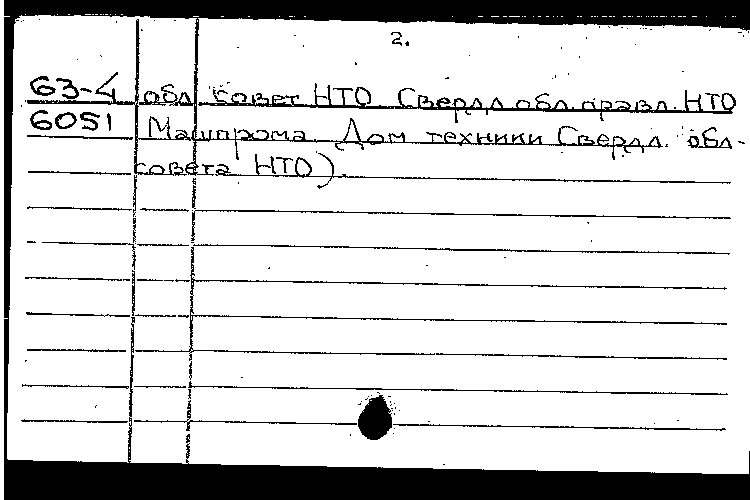 2.
63-4 обл. совет НТО Свердл. обл. правл. НТО
6051 Машпрома. Дом техники Свердл. обл-
совета НТО).